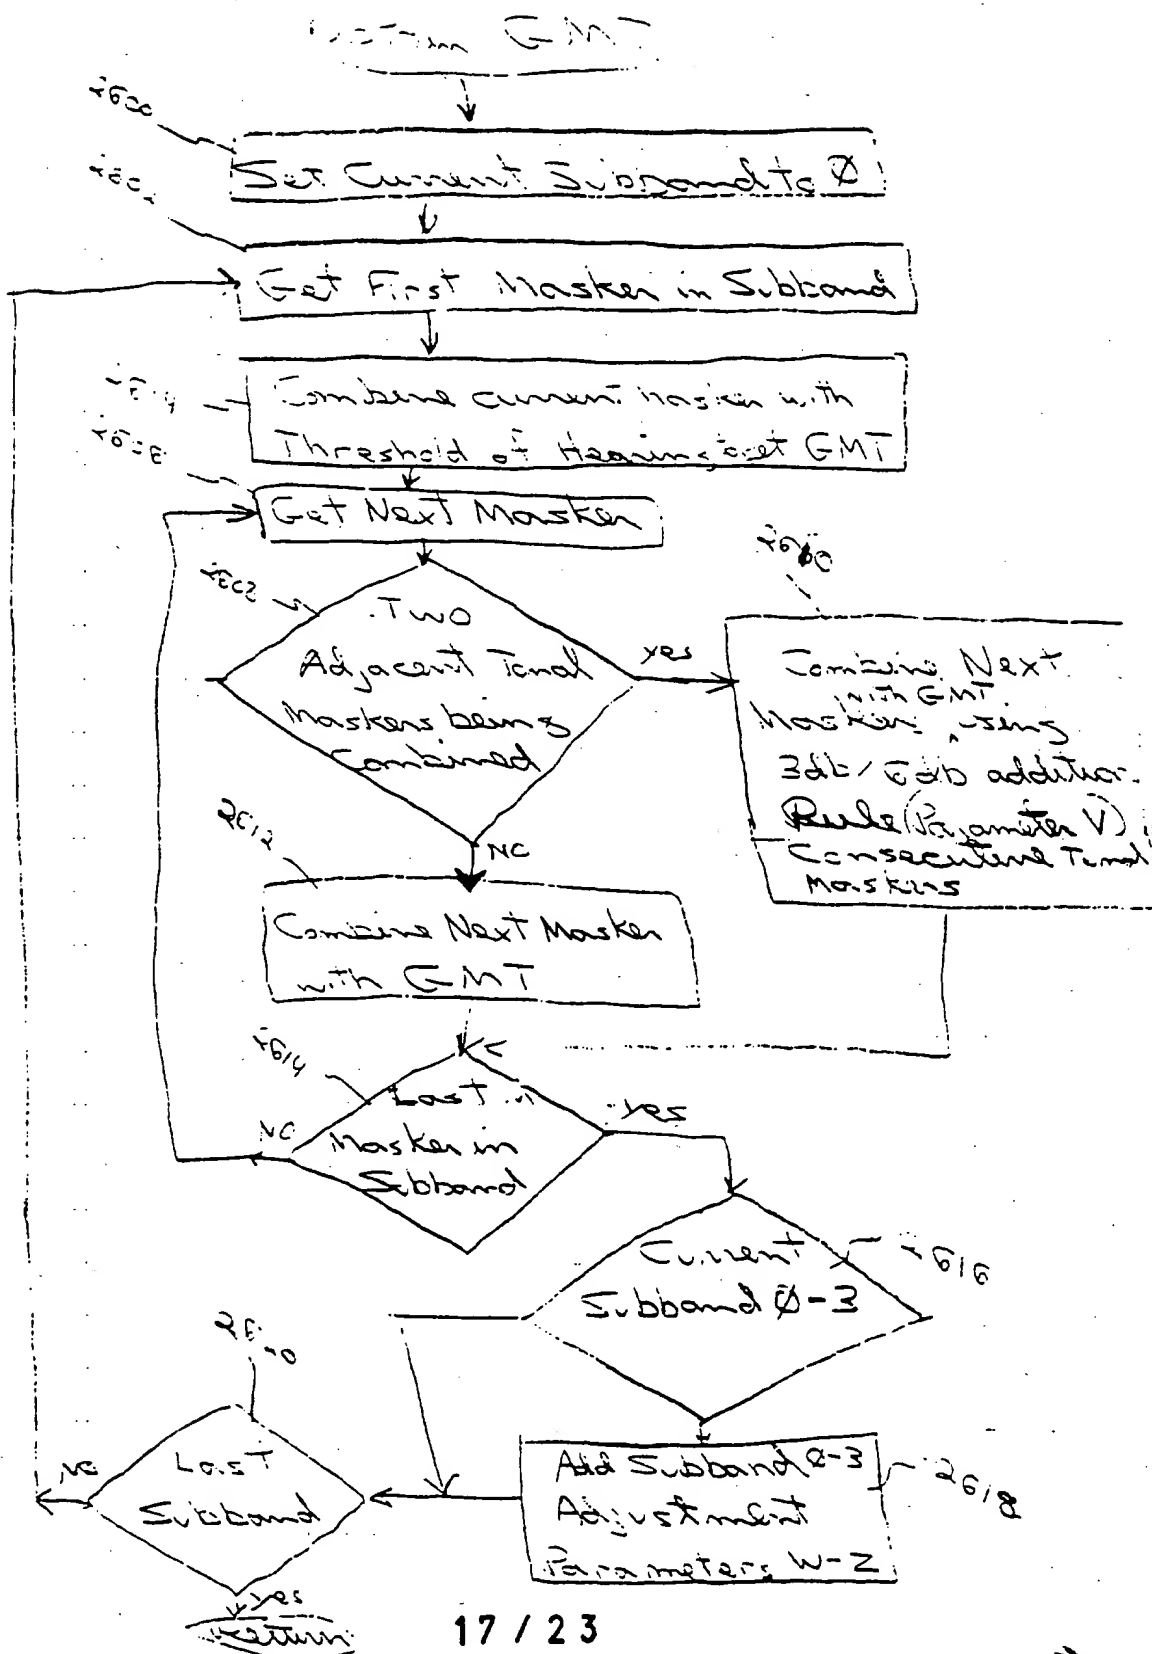 GMT
Set Current Subband to Ø
Get First Masker in Subband
Combine current masker with
Threshold of Hearing, get GMT
Get Next Masker
Two
Adjacent Tonal
Maskers being
Combined
yes
Combine Next
with GMT
Masker using
3db/6db addition
Rule (Parameter V)
Consecutive Tonal
Maskers
2612
NO
Combine Next Masker
with GMT
2614
Last
Masker in
Subband
NO
yes
Current
Subband Ø-3
2616
Last
Subband
NO
Add Subband Ø-3
Adjustment
Parameters W-Z
2618
yes
Return
17/23